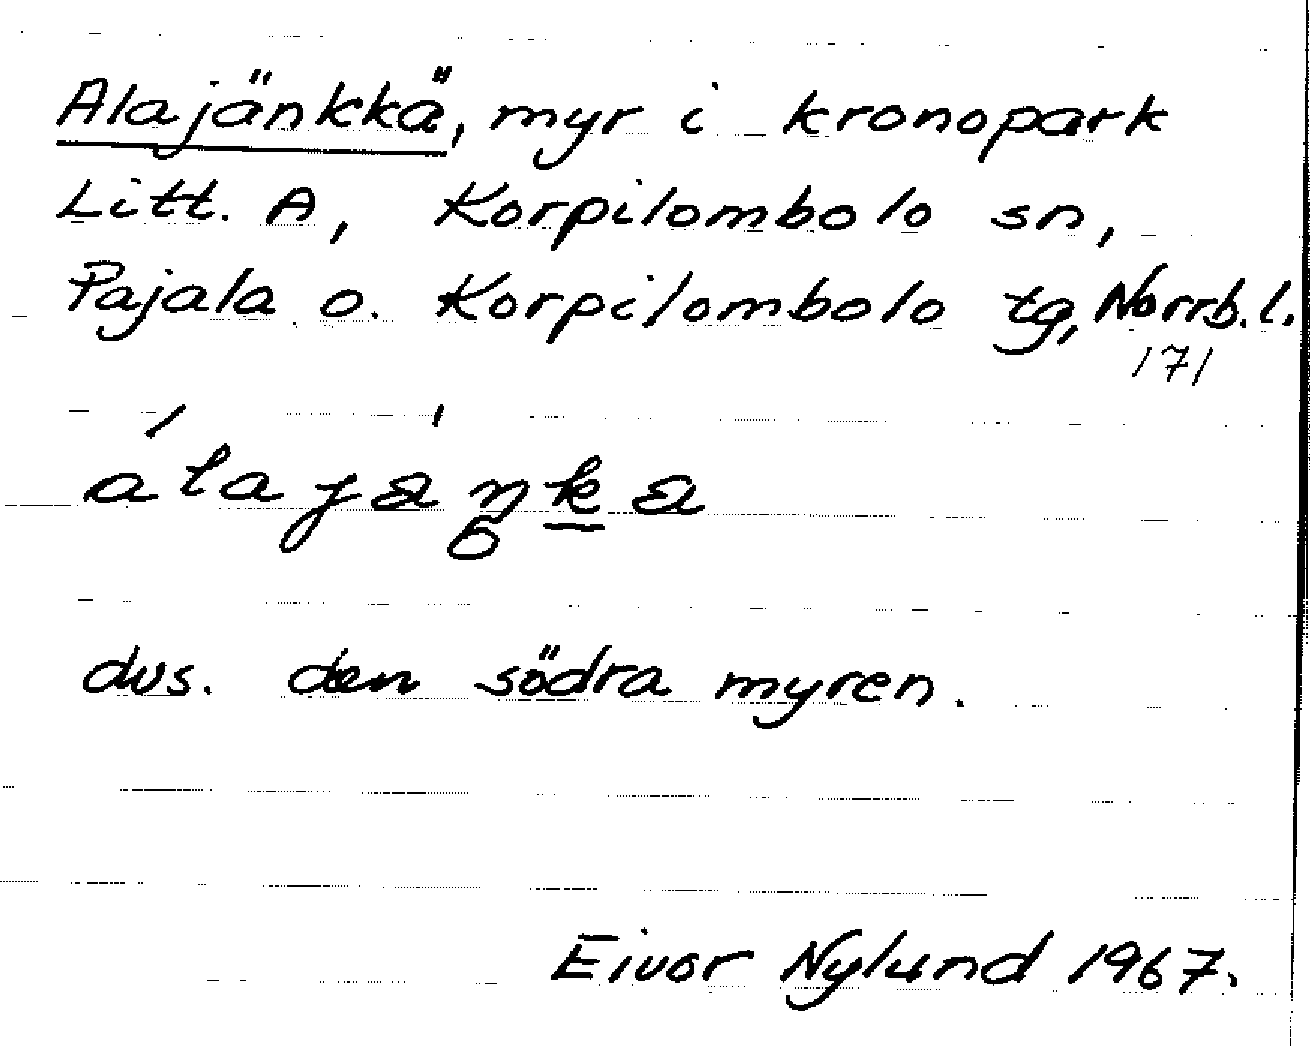 Alajänkkä, myr i kronopark
Litt. A, Korpilombolo sn,
Pajala o. Korpilombolo tg, Norrb. l.
171
dvs. den södra myren.
Eivor Nylund 1967.